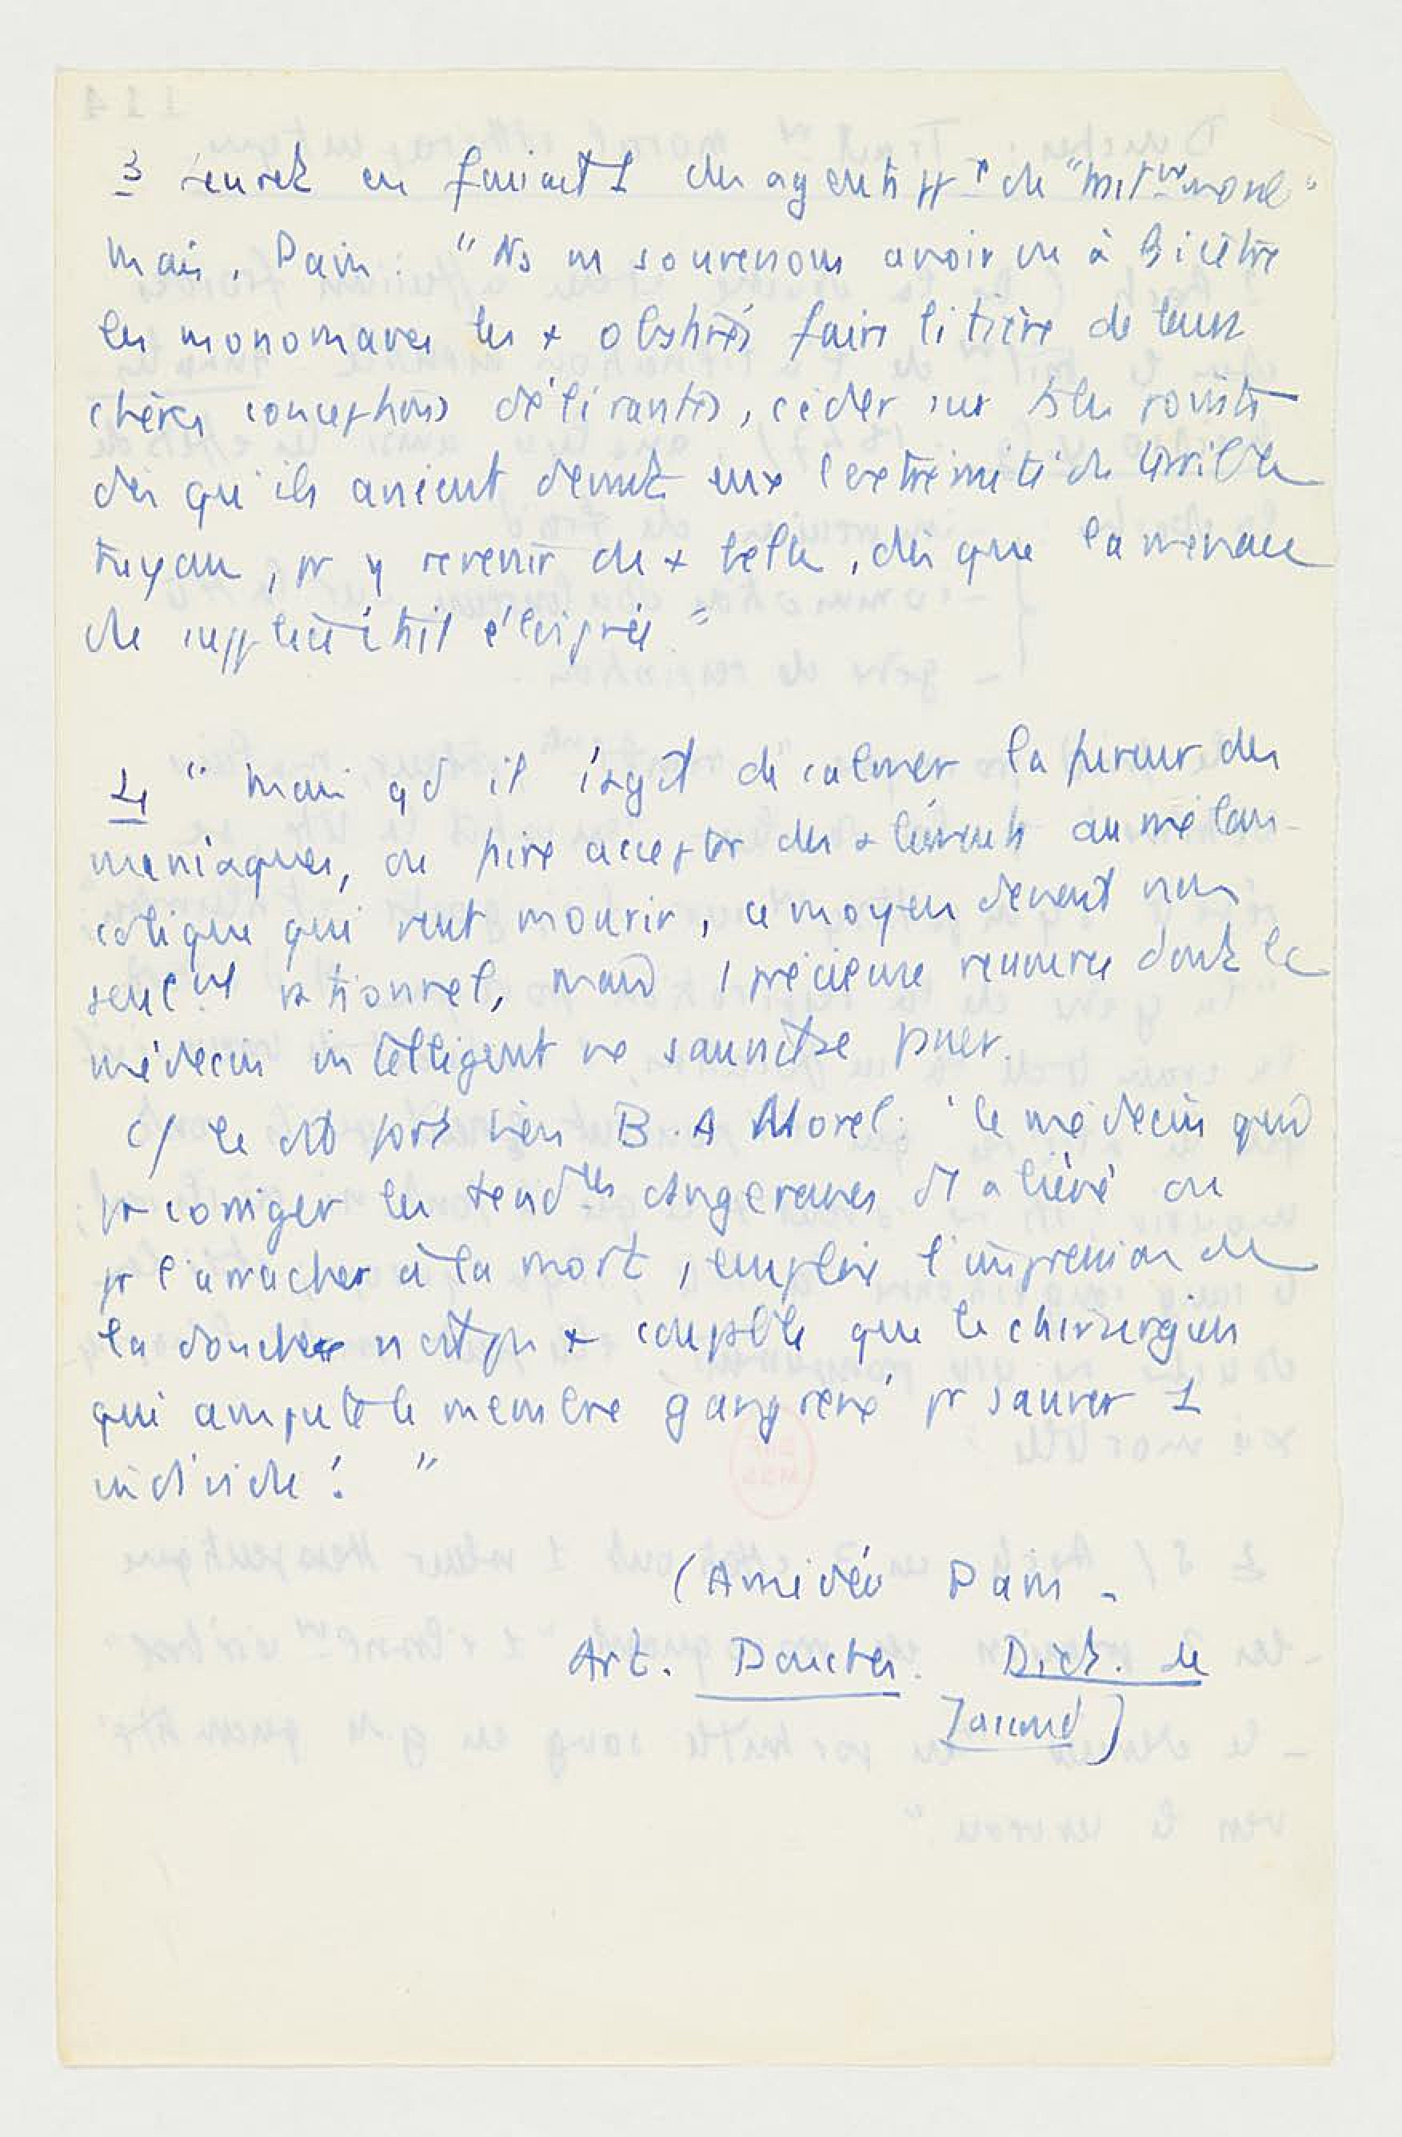 3 Leuret en faisait 1 des agents ppx du "trait^nt moral"
mais, Dain : "Ns ns souvenons avoir vu à Bicêtre
les monomanes les + obstinés faire litière de leurs
chères conceptions délirantes, céder sur ts les points
dès qu'ils avaient devant eux l'extrémité du terrible
tuyau, pr y revenir de + belle, dès que la menace
du supplice était éloignée."
4 "Mais qd il s'agit de calmer la fureur des
maniaques, ou faire accepter des aliments au mélan-
colique qui veut mourir, ce moyen devient non
seul^nt rationnel, mais 1 précieuse ressource dont le
médecin intelligent ne saurait se priver.
c/ le dit fort bien B. A Morel : 'le médecin qui
pr corriger les tend^ces dangereuses d'1 aliéné ou
pr l'arracher à la mort, emploie l'impression de
la douche n'est pas + coupable que le chirurgien
qui ampute le membre gangrené pr sauver 1
individu'. "
(Amédée Dain -
Art. Douches. Dict. de
Jaccoud)